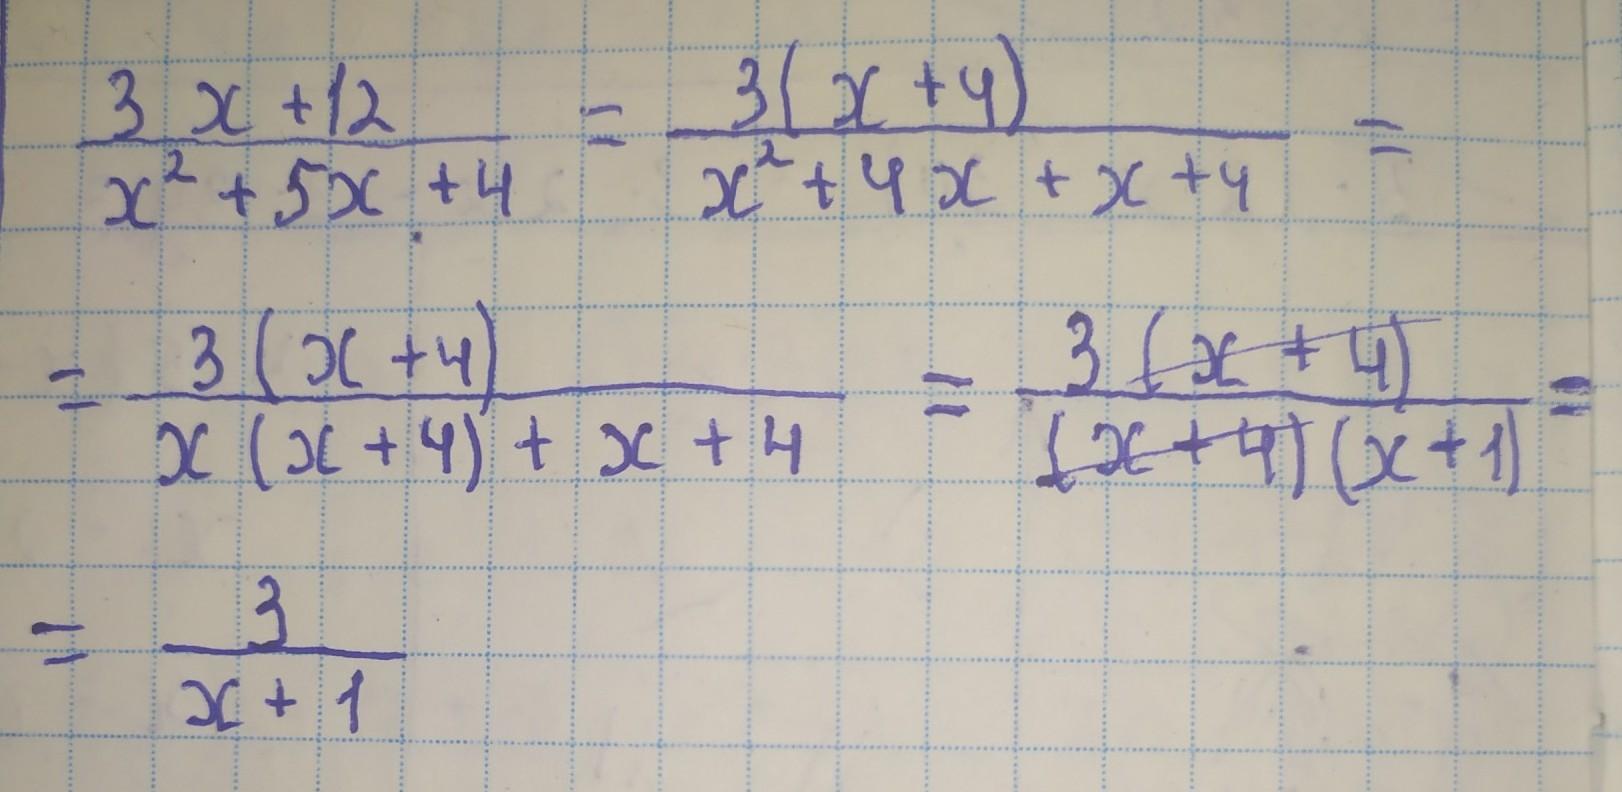 (3x+12)/(x²+5x+4) = (3(x+4))/(x²+4x+x+4) =
= (3(x+4))/(x(x+4)+x+4) = (3(x+4))/((x+4)(x+1)) =
= 3/(x+1)